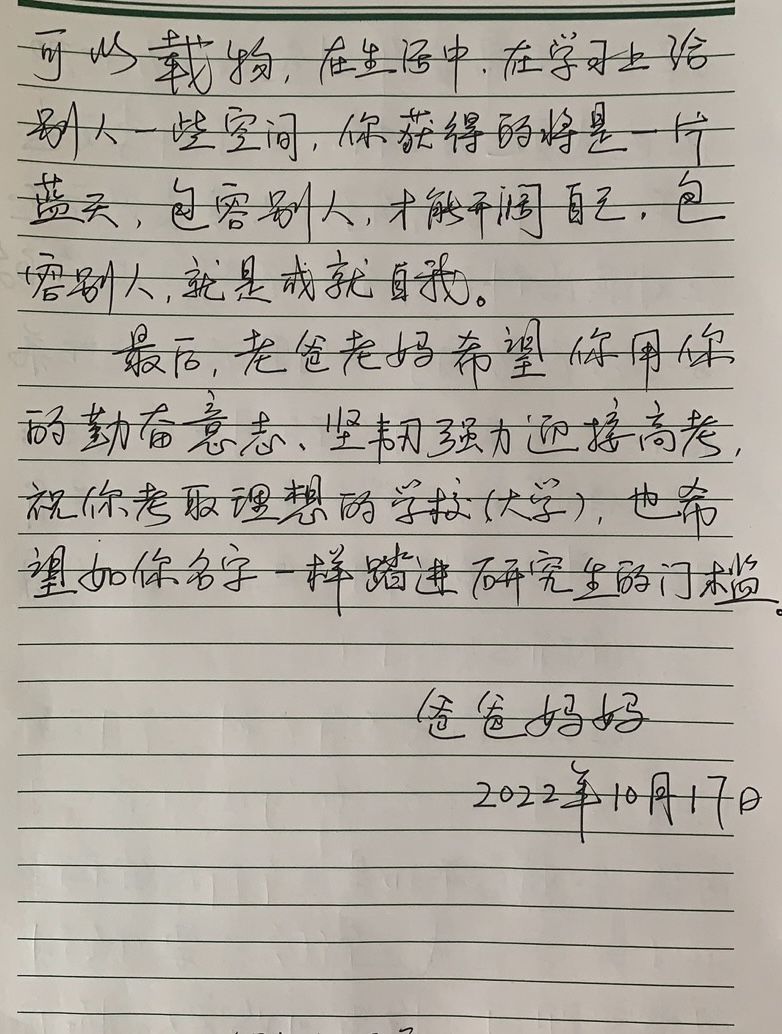 可以载物，在生活中、在学习上给
别人一些空间，你获得的将是一片
蓝天，包容别人，才能开阔自己，包
容别人，就是成就自我。
最后，老爸老妈希望你用你
的勤奋意志、坚韧强力迎接高考，
祝你考取理想的学校(大学)，也希
望如你名字一样踏进研究生的门槛。
爸爸妈妈
2022年10月17日